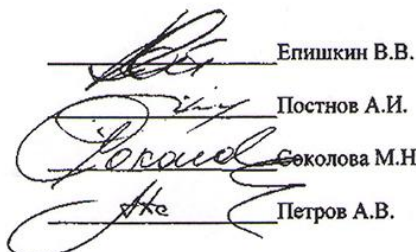 Епишкин В.В.
Постнов А.И.
Соколова М.Н
Петров А.В.